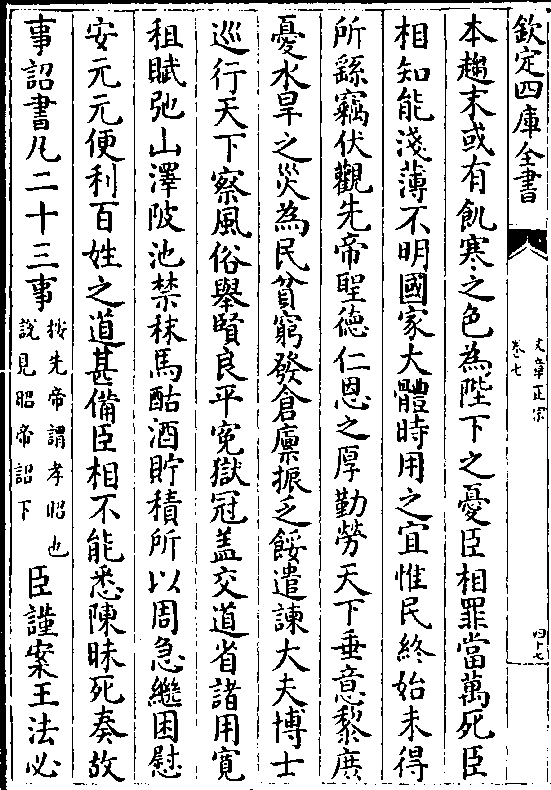 欽定四庫全書
文章正宗
卷七
四十七
本趨末或有飢寒之色為陛下之憂臣相罪當萬死臣
相知能淺薄不明國家大體時用之宜惟民終始未得
所繇竊伏觀先帝聖德仁恩之厚勤勞天下垂意黎庶
憂水旱之災為民貧窮發倉廩振乏餒遣諫大夫博士
巡行天下察風俗舉賢良平寃獄冠盖交道省諸用寛
租賦弛山澤陂池禁秣馬酤酒貯積所以周急繼困慰
安元元便利百姓之道甚備臣相不能悉陳昧死奏故
事詔書凡二十三事
按先帝謂孝昭也
說見昭帝詔下
臣謹案王法必